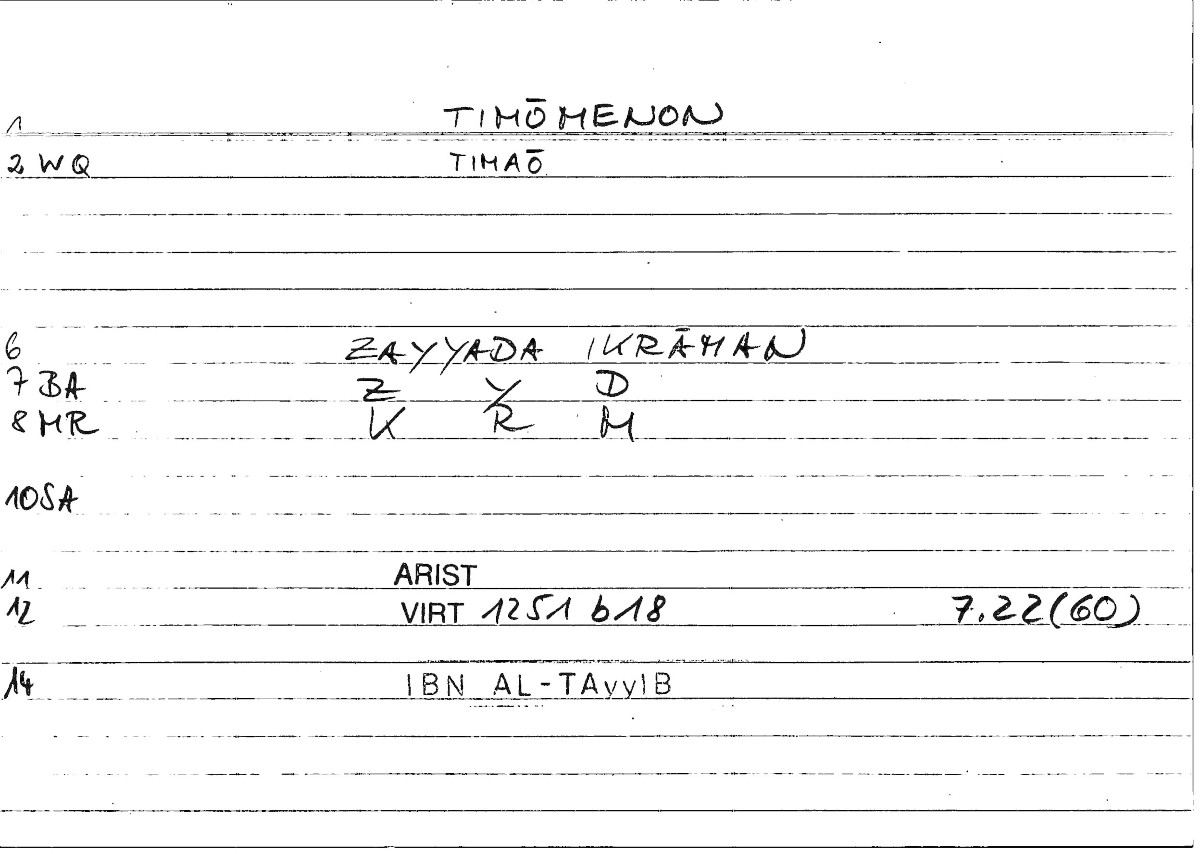 1 TIMŌMENON
2 WQ TIMAŌ
6 ZAYYADA IKRĀMAN
7 BA Z Y D
8 MR K R M
10 SA
11 ARIST
12 VIRT 1251 b18 7.22(60)
14 IBN AL-TAyyIB